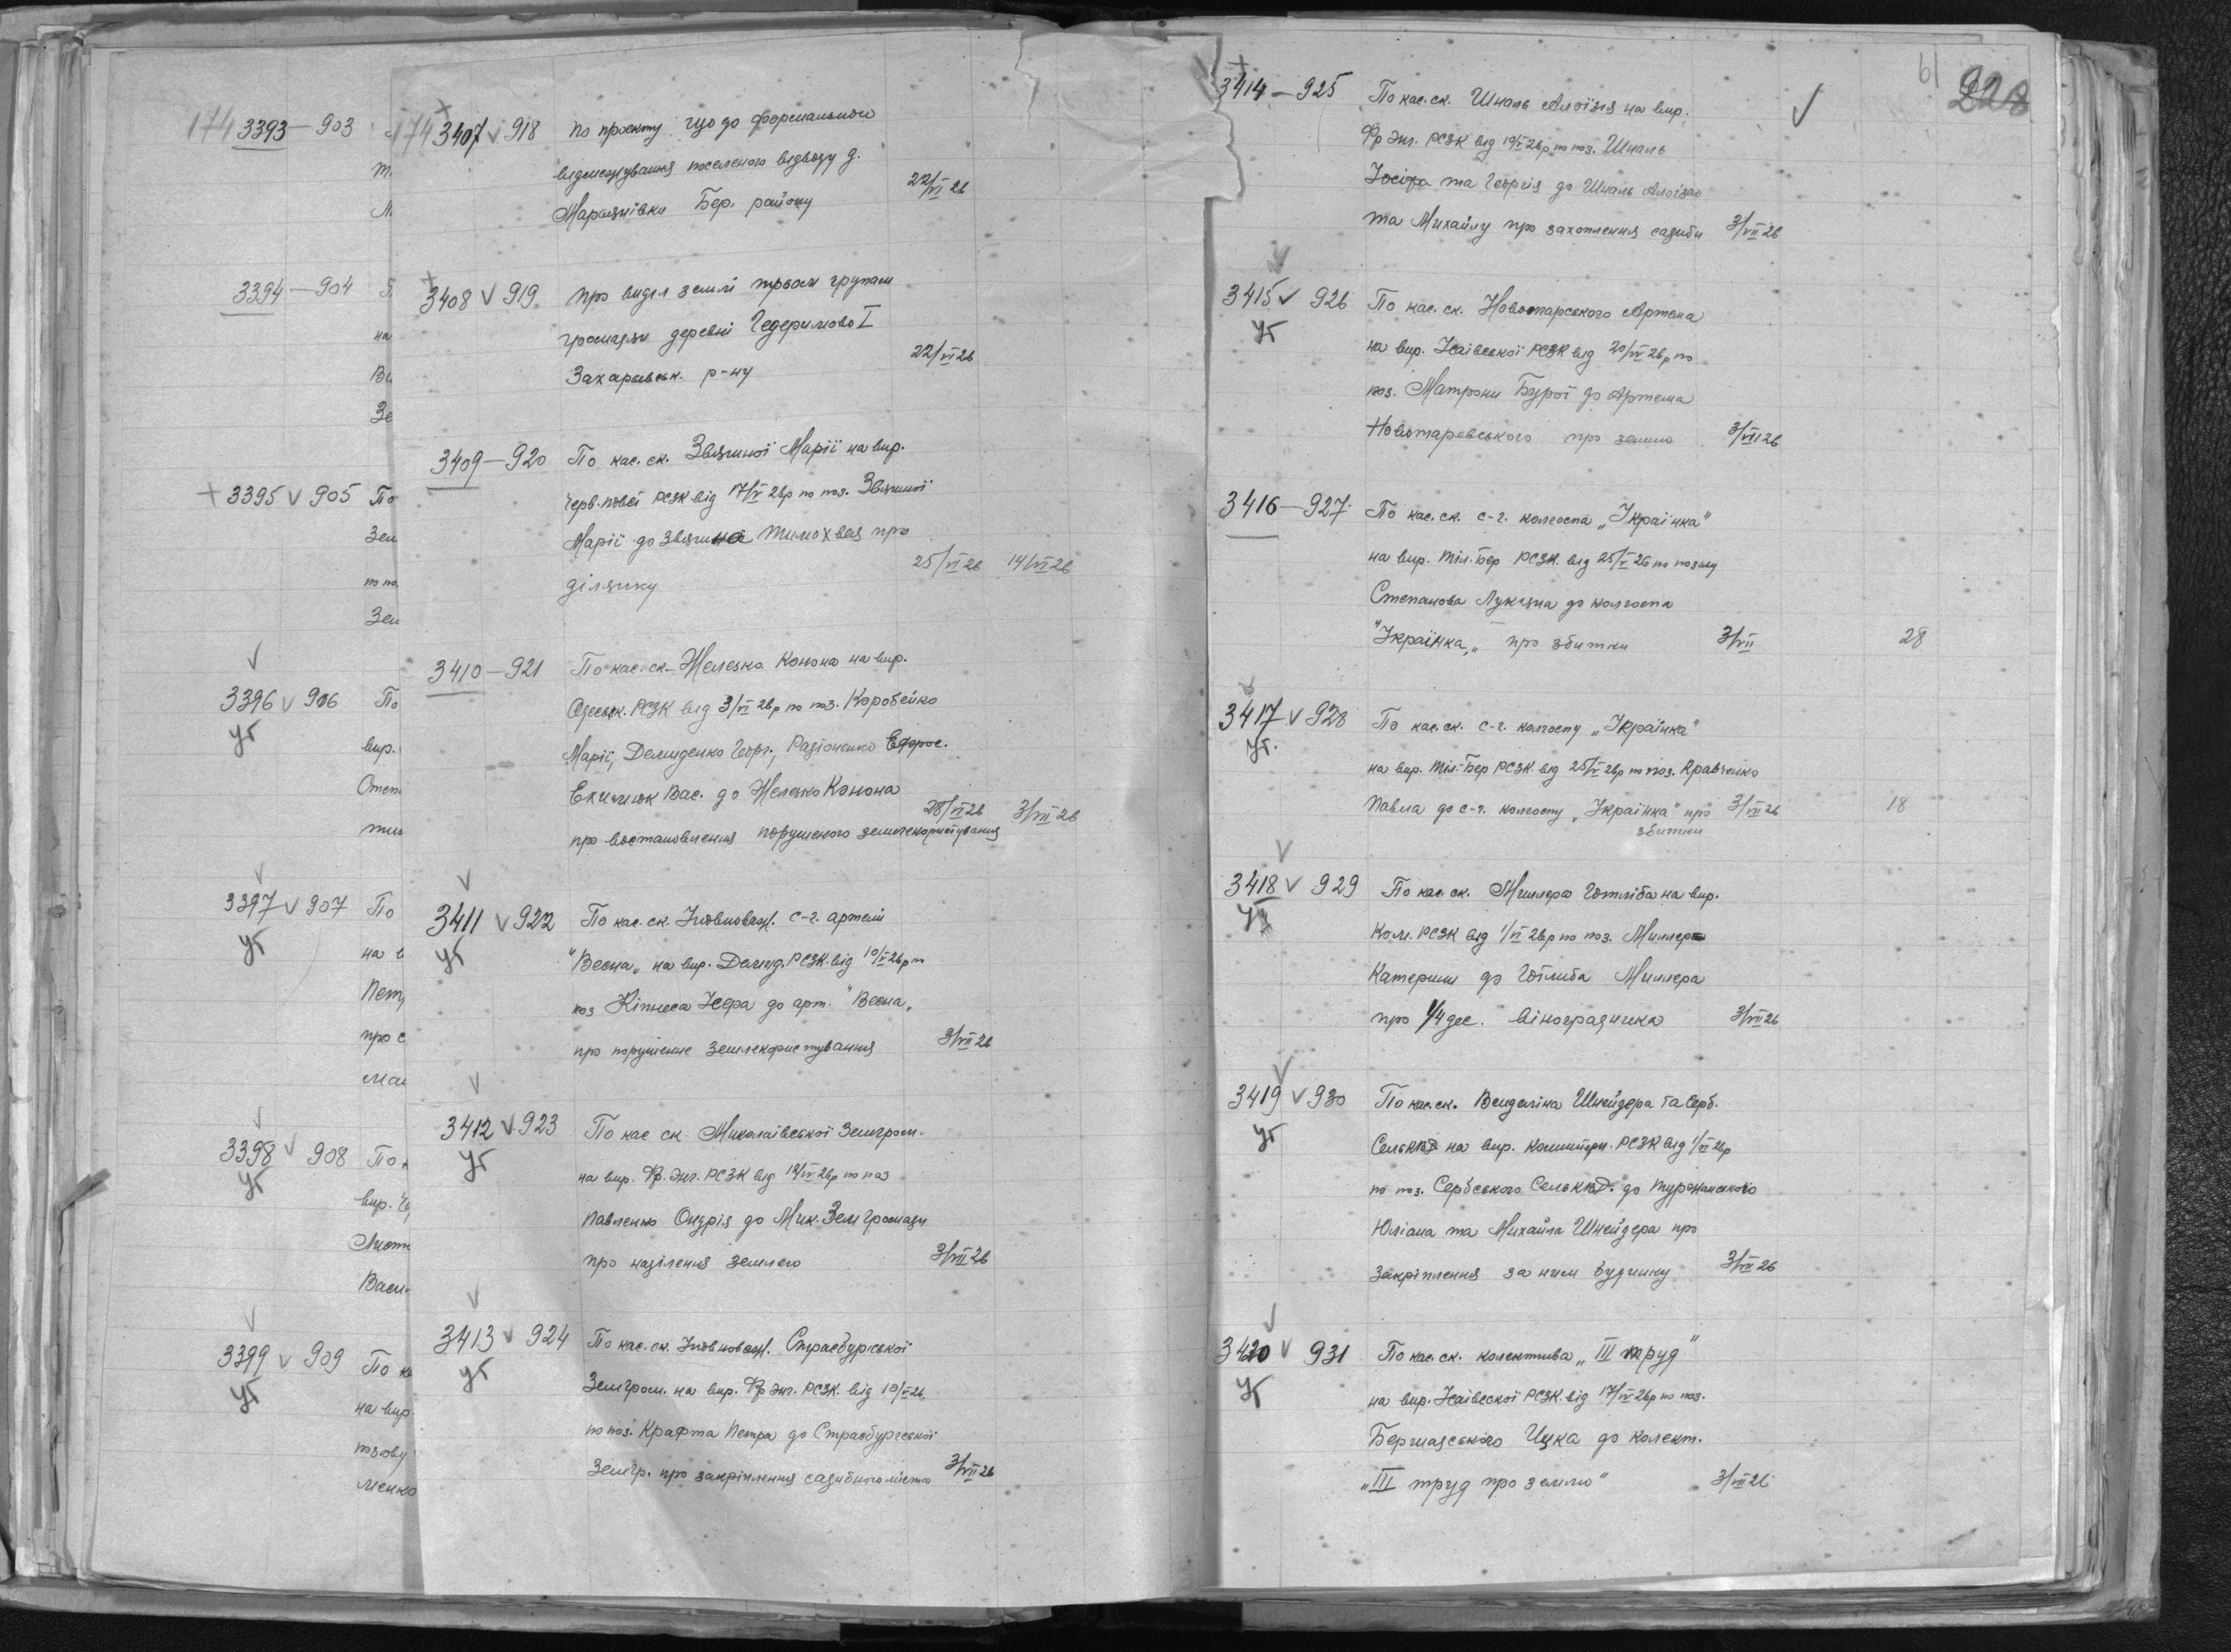 174 3393 — 903
3394 — 904
на
Ви
Зе
+ 3395 v 905 По
Зем
по по
Зем
3396 v 906 По
ут
вир.
Степ
3397 v 907 По
ут
на в
Пет
про с
3398 v 908 По к
ут
вир.
Васи
3399 v 909 По ка
ут
на вир
позову
менко
174 3407 v 918 по проекту що до формального
відмежування поселеного відводу д.
Маразнівки Бер. району 22/VI 26
3408 v 919 про виділ землі трьом групам
громадян деревні Гедеримово I
Захарьевськ. р-ну 22/VI 26
3409 — 920 По кас. ск. Звягиної Марії на вир.
Черв. РСЗК від 17/V 26р по поз. Звягиної
Марії до Звягина Тимохвея про
ділянку 25/VI 26 14/VII 26
3410 — 921 По кас. ск. Железко Конона на вир.
Одеськ. РСЗК від 3/VI 26р по поз. Коробейко
Марії, Демиденко Георг., Радіоненко Ефрос.
Екимчук Вас. до Железко Конона 28/VI 26 3/VII 26
про востановлення порушеного землекористування
3411 v 922 По кас. ск. Уповноваж. с-г. артели
ут "Весна" на вир. Демид. РСЗК від 10/V 26р по
поз Кіпниса Йсера до арт. "Весна"
про порушенне землекористування 3/VII 26
3412 v 923 По кас ск Миколаївської Земгром.
ут на вир. Фр. Энг. РСЗК від 19/IV 26р по поз
Павленко Ондрія до Мик. Зем громади
про наділення землею 3/VII 26
3413 v 924 По кас. ск. Уповноваж. Страсбурської
ут Земгром. на вир. Фр Энг. РСЗК. від 19/V 26
по поз. Крафта Петра до Страсбургської
Земгр. про закріплення садибного міста 3/VII 26
61 228
3414 — 925 По кас. ск. Шналь Алоїзія на вир.
Фр Энг. РСЗК від 19/V 26р по поз. Шналь
Йосіфа та Георгія до Шналь Алоізію
та Михайлу про захоплення садиби 3/VII 26
3415 v 926 По кас. ск. Новотарського Артема
ут на вир. Ісаївської РСЗК від 20/IV 26р по
поз. Матрони Бурої до Артема
Новотаревського про землю 3/VII 26
3416 — 927 По кас. ск. с-г. колгоспа „Українка"
на вир. Тил. Бер РСЗК. від 25/V 26 по позову
Степанова Лукяна до колгоспа
"Українка" про збитки 3/VII 28
3417 v 928 По кас. ск. с-г. колгоспу „Українка"
ут. на вир. Тил. Бер РСЗК від 25/V 26р по поз. Кравченко
Павла до с-г. колгоспу „Українка" про 3/VII 26 18
збитки
3418 v 929 По кас. ск. Миллера Готліба на вир.
Кол. РСЗК від 1/VI 26р по поз. Миллер
Катерини до Готлиба Миллера
про 1/4 дес. віноградника 3/VII 26
3419 v 930 По кас. ск. Венделіна Шнейдера та Серб.
ут Селькка на вир. Комінтерн. РСЗК від 1/VI 26р
по поз. Сербського Селькка до Туржанського
Юліана та Михайла Шнейдера про
Закріплення за ним будинку 3/VII 26
3420 v 931 По кас. ск. колектива „III труд"
ут на вир. Ісаівської РСЗК від 17/IV 26р по поз.
Бершадського Ицка до колект.
„III труд про землю" 3/VII 26